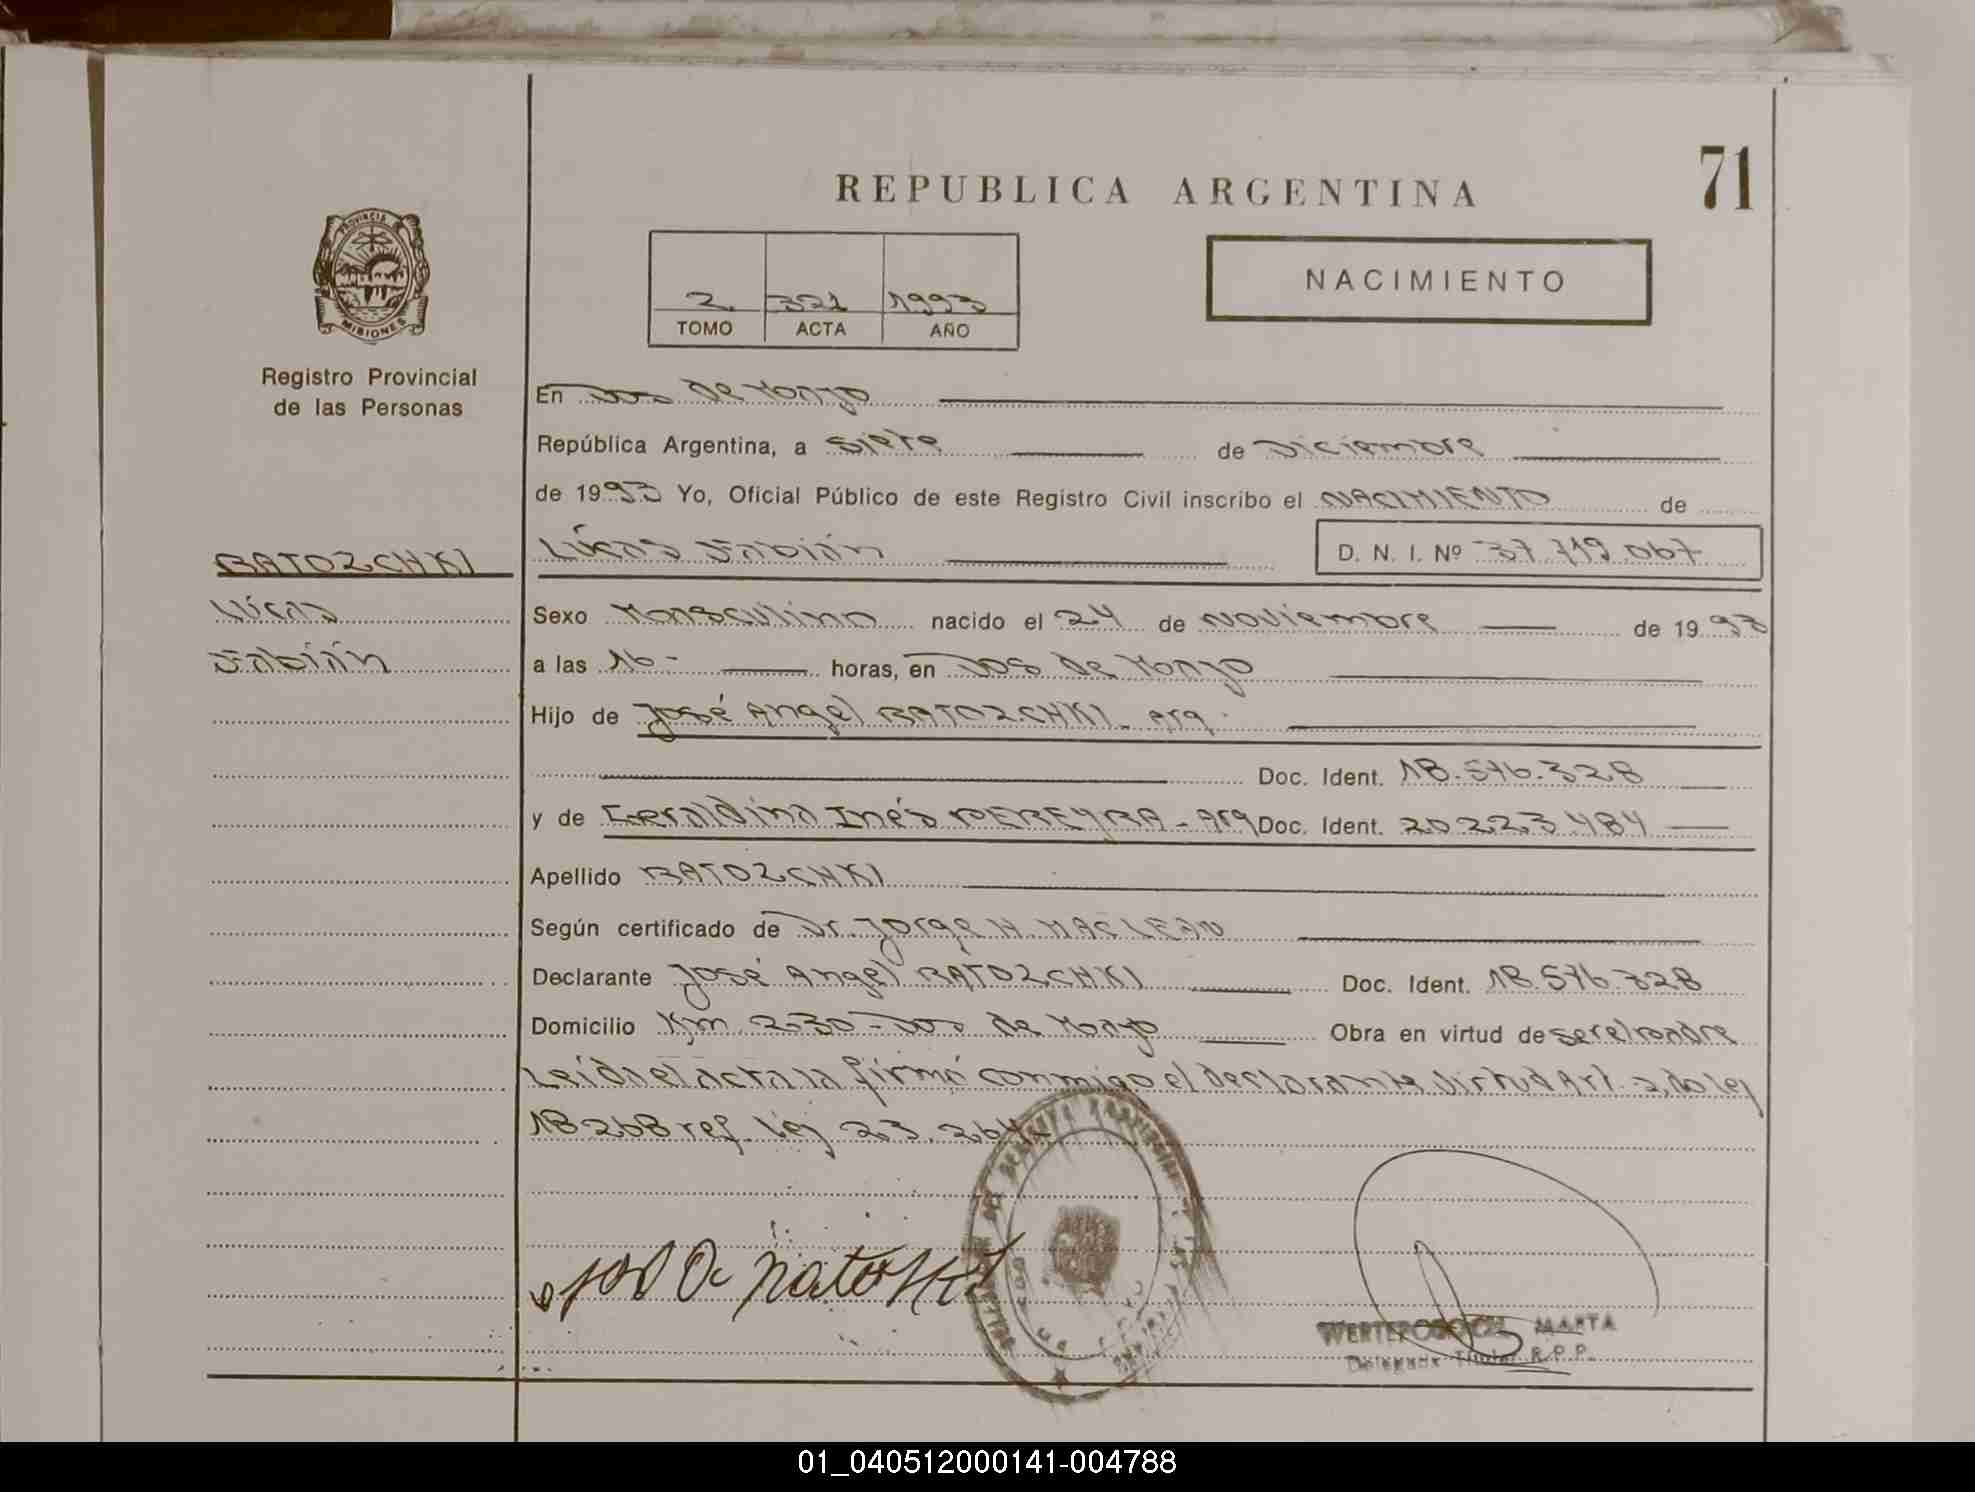 71
REPUBLICA ARGENTINA
PROVINCIA
MISIONES
2. 321 1993
TOMO ACTA AÑO
NACIMIENTO
Registro Provincial
de las Personas
En Dos de Mayo
República Argentina, a siete de Diciembre
de 1993 Yo, Oficial Público de este Registro Civil inscribo el NACIMIENTO de
RATOZCHKI
Lúcas Fabián D. N. I. Nº 37.719.067
Lúcas
Fabián
Sexo Masculino nacido el 24 de Noviembre de 1993
a las 16- horas, en Dos de Mayo
Hijo de José Angel RATOZCHKI- Arg.
Doc. Ident. 18.576.328
y de Geraldina Inés PEREYRA - Arg Doc. Ident. 20.223.484
Apellido RATOZCHKI
Según certificado de Dr. Jorge H. MAC LEAN
Declarante José Angel RATOZCHKI Doc. Ident. 18.576.328
Domicilio Km 230 - Dos de Mayo Obra en virtud de ser el padre
Leída el acta la firmó conmigo el declarante. Virtud Art. 2do ley
18268 ref. Ley 23.264
MARTA
Titular R.P.P.
01_040512000141-004788